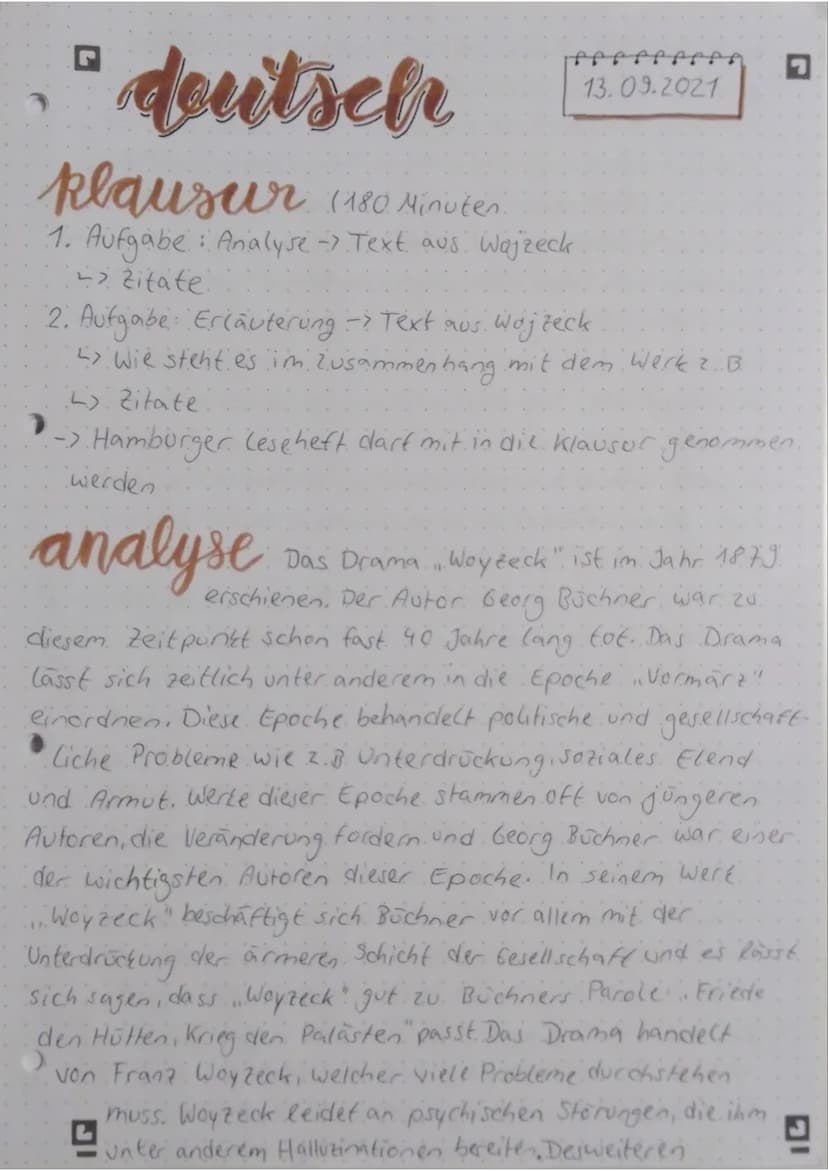 deutsch
13.09.2021
klausur (180 Minuten
1. Aufgabe: Analyse -> Text aus Wojzeck
↳ Zitate
2. Aufgabe: Erläuterung -> Text aus Wojzeck
↳ Wie steht es im Zusammenhang mit dem Werk z.B
↳ Zitate
-> Hamburger Leseheft darf mit in die Klausur genommen
werden
analyse Das Drama „Woyzeck" ist im Jahr 1879
erschienen. Der Autor Georg Büchner war zu
diesem Zeitpunkt schon fast 40 Jahre lang tot. Das Drama
lässt sich zeitlich unter anderem in die Epoche „Vormärz"
einordnen. Diese Epoche behandelt politische und gesellschaft-
liche Probleme wie z.B Unterdrückung, soziales Elend
und Armut. Werke dieser Epoche stammen oft von jüngeren
Autoren, die Veränderung fordern und Georg Büchner war einer
der wichtigsten Autoren dieser Epoche. In seinem Werk
„Woyzeck" beschäftigt sich Büchner vor allem mit der
Unterdrückung der ärmeren Schicht der Gesellschaft und es lässt
sich sagen, dass „Woyzeck" gut zu Büchners Parole „Friede
den Hütten, Krieg den Palästen" passt. Das Drama handelt
von Franz Woyzeck, welcher viele Probleme durchstehen
muss. Woyzeck leidet an psychischen Störungen, die ihm
unter anderem Halluzinationen bereiten. Desweiteren